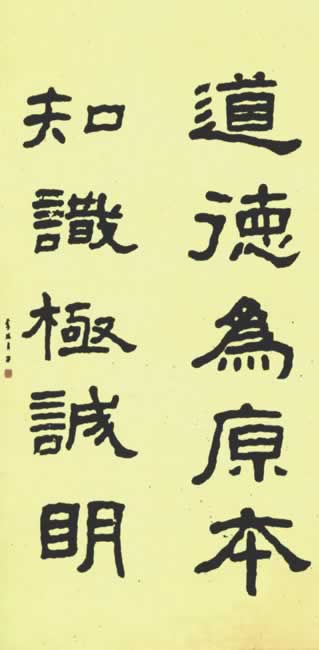 道德為原本
知識極誠明